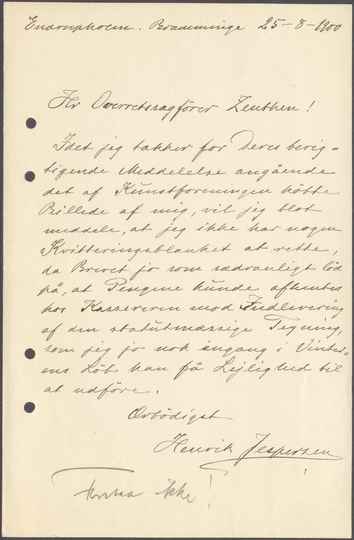 Endrupholm. Bramminge 25-8-1900
Hr Overretssagfører Zeuthen!
Idet jeg takker for Deres berig-
tigende Meddelelse angående
det af Kunstforeningen købte
Billede af mig, vil jeg blot
meddele, at jeg ikke har nogen
Kvitteringsblanket at rette,
da Brevet jo som sædvanligt lød
på, at Pengene kunde afhentes
hos Kassereren mod Indlevering
af den statutmæssige Tegning,
som jeg jo nok engang i Vinter-
ens Løb kan få Lejlighed til
at udføre.
Ærbødigst
Henrik Jespersen
ikke!